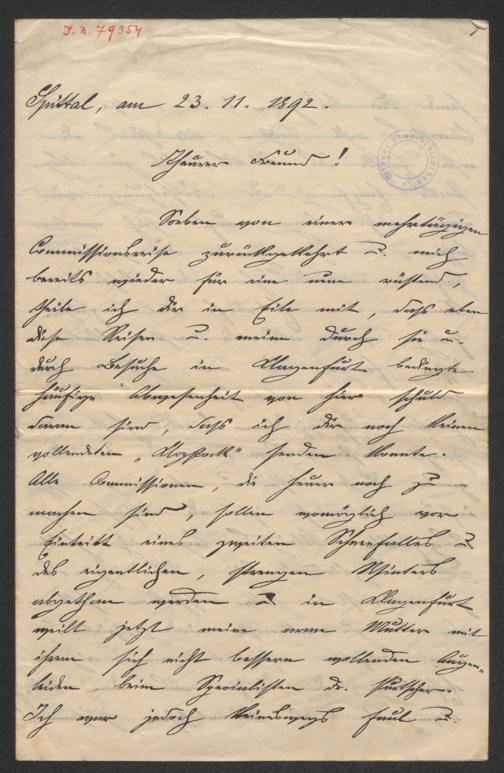 J. N. 79354
Spittal, am 23. 11. 1892.
Theurer Freund!
Soeben von einer mehrtägigen
Commissionsreise zurückgekehrt u. mich
bereits wieder für eine neue rüstend,
theile ich dir in Eile mit, dass eben
diese Reisen u. meine durch sie u.
durch Besuche in Klagenfurt bedingte
häufige Abwesenheit von hier schuld
daran sind, dass ich dir noch keinen
vollendeten senden konnte.
Alle Commissionen, die heuer noch zu
machen sind, sollen womöglich vor
Eintritt eines zweiten Schneefalles u.
des eigentlichen, strengen Winters
abgethan werden u. in Klagenfurt
weilt jetzt meine arme Mutter mit
ihrem sich nicht bessern wollenden Augen-
leiden beim Specialisten Dr.
Ich war jedoch keineswegs faul u.